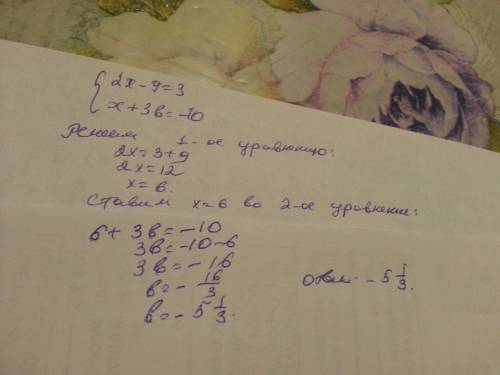 { 2x - 9 = 3
x + 3в = -10
Решаем 1-ое уравнение:
2x = 3 + 9
2x = 12
x = 6.
Ставим x = 6 во 2-ое уравнение:
6 + 3в = -10
3в = -10 - 6
3в = -16
в = - 16/3
в = - 5 1/3.
Ответ: - 5 1/3.